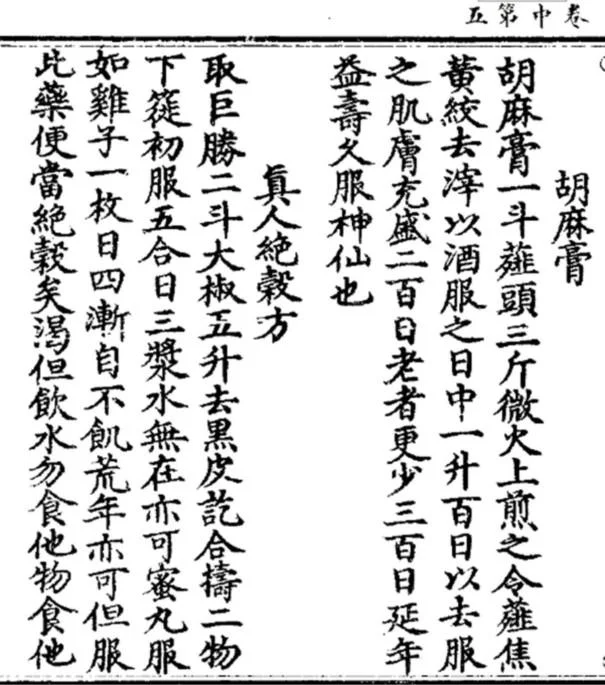 卷中第五
胡麻膏
胡麻膏一斗薤頭三斤微火上煎之令薤焦
黃絞去滓以酒服之日中一升百日以去服
之肌膚充盛二百日老者更少三百日延年
益壽久服神仙也
真人絶穀方
取巨勝二斗大椒五升去黑皮訖合擣二物
下簁初服五合日三漿水無在亦可蜜丸服
如雞子一枚日四漸自不飢荒年亦可但服
此藥便當絶穀矣渴但飲水勿食他物食他